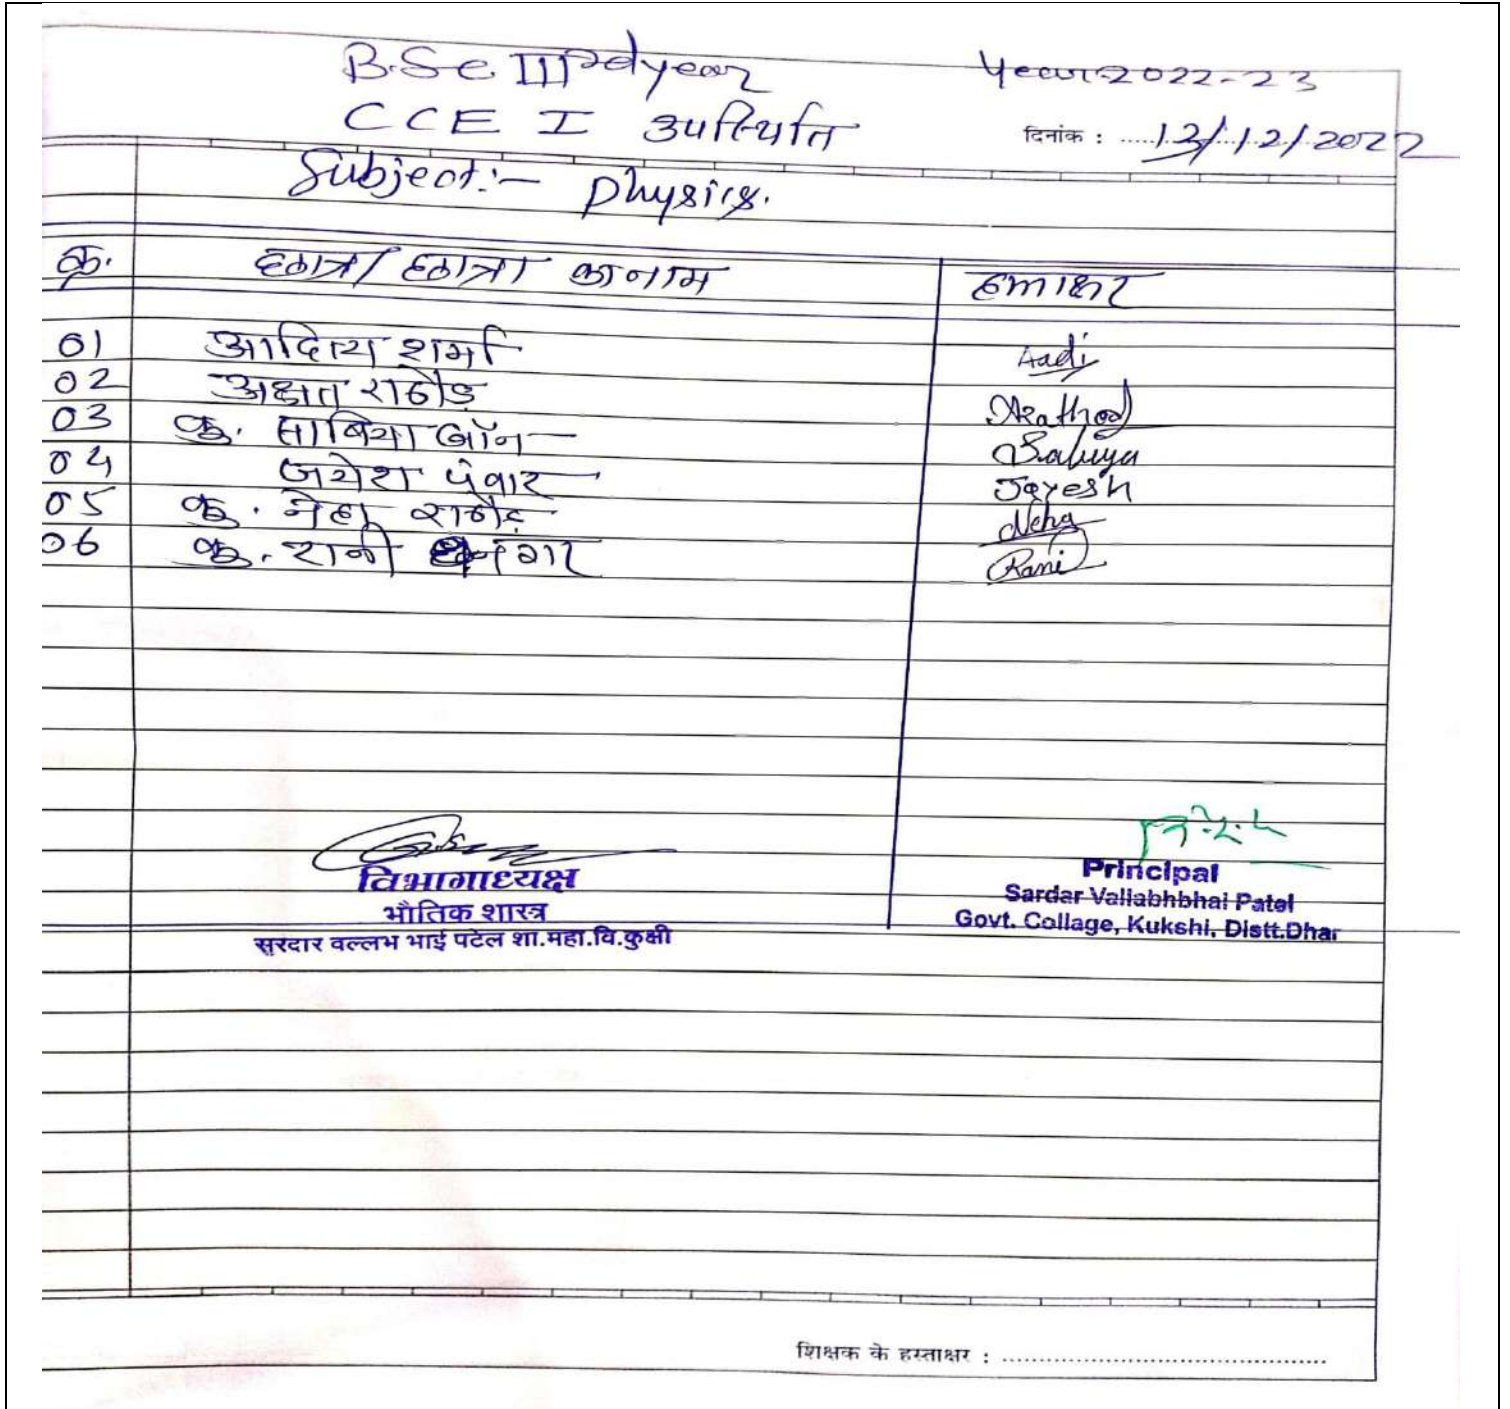 B.Sc. IIIrd year Year 2022-23
CCE I उपस्थिति दिनांक : 13/12/2022
Subject:- Physics.
क्र. छात्र/छात्रा का नाम हस्ताक्षर
01 आदित्य शर्मा Aadi
02 अक्षत राठौड़ Arathod
03 कु. साबिया खॉन Sabiya
04 जयेश पंवार Jayesh
05 कु. नेहा राठौड़ Neha
06 कु. रानी Rani
विभागाध्यक्ष
भौतिक शास्त्र
सरदार वल्लभ भाई पटेल शा.महा.वि.कुक्षी
Principal
Sardar Vallabhbhai Patel
Govt. Collage, Kukshi, Distt.Dhar
शिक्षक के हस्ताक्षर : ................................................